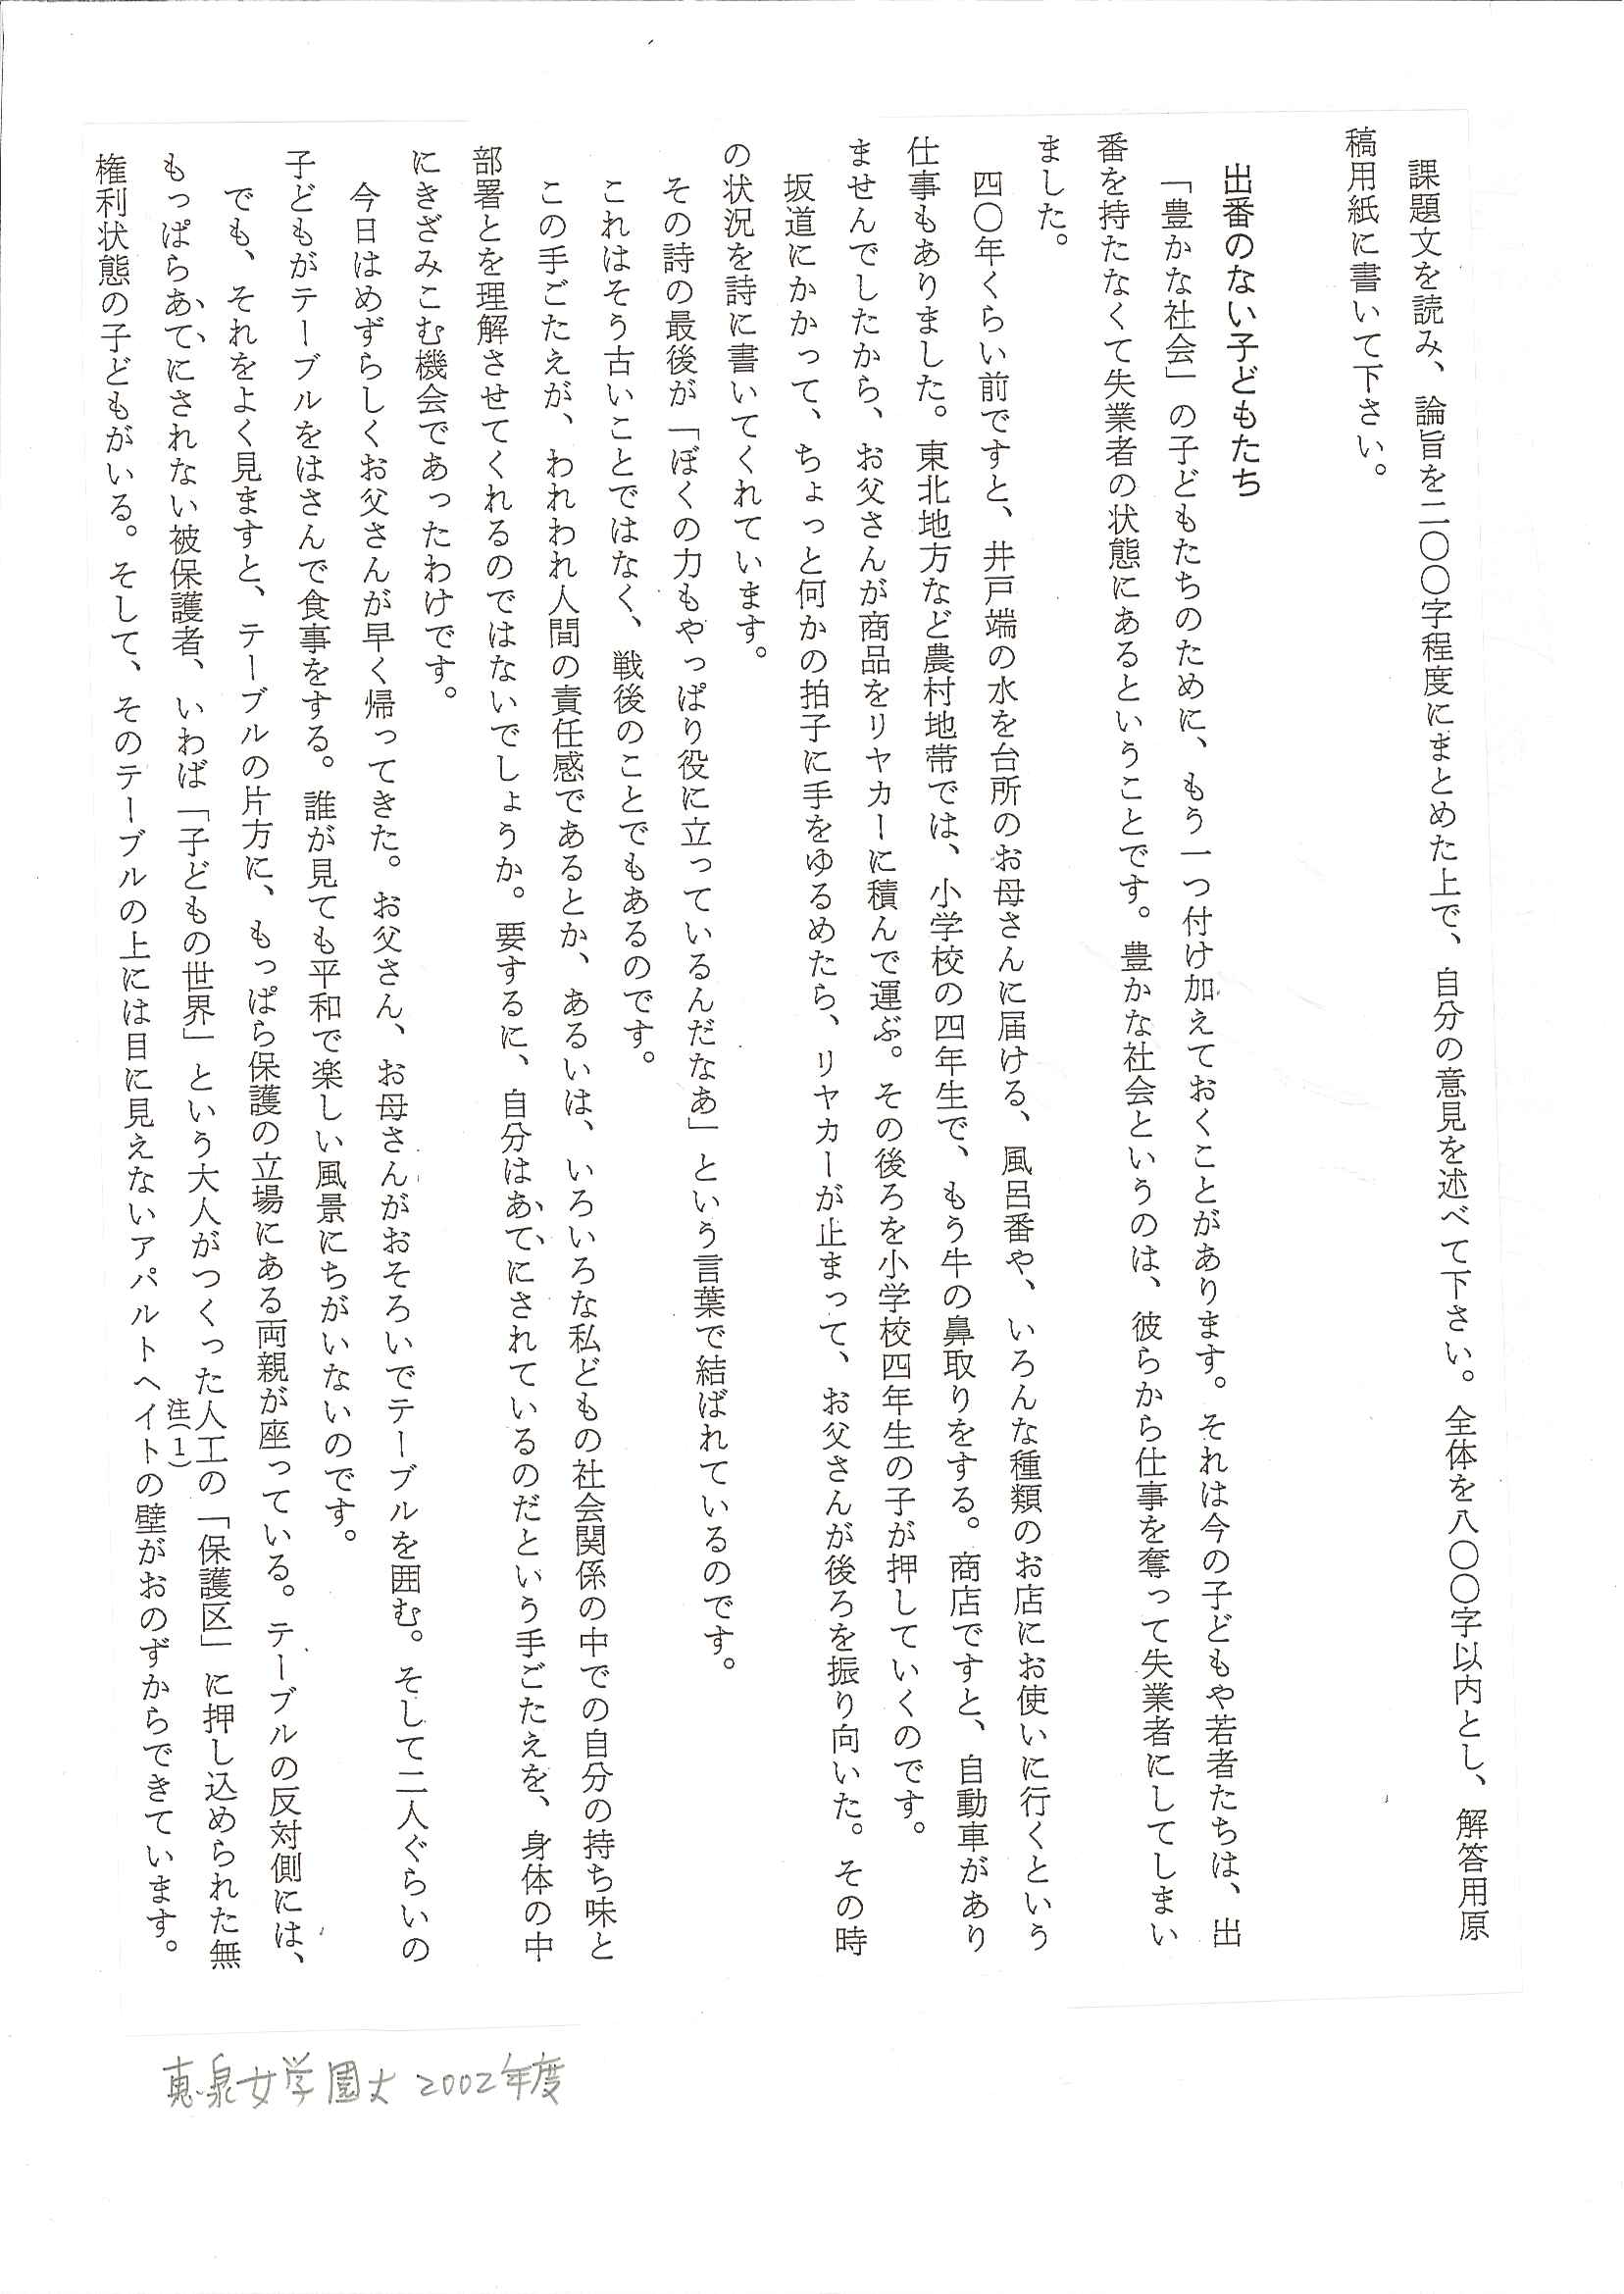 課題文を読み、論旨を二〇〇字程度にまとめた上で、自分の意見を述べて下さい。全体を八〇〇字以内とし、解答用原
稿用紙に書いて下さい。
出番のない子どもたち
「豊かな社会」の子どもたちのために、もう一つ付け加えておくことがあります。それは今の子どもや若者たちは、出
番を持たなくて失業者の状態にあるということです。豊かな社会というのは、彼らから仕事を奪って失業者にしてしまい
ました。
四〇年くらい前ですと、井戸端の水を台所のお母さんに届ける、風呂番や、いろんな種類のお店にお使いに行くという
仕事もありました。東北地方など農村地帯では、小学校の四年生で、もう牛の鼻取りをする。商店ですと、自動車があり
ませんでしたから、お父さんが商品をリヤカーに積んで運ぶ。その後ろを小学校四年生の子が押していくのです。
坂道にかかって、ちょっと何かの拍子に手をゆるめたら、リヤカーが止まって、お父さんが後ろを振り向いた。その時
の状況を詩に書いてくれています。
その詩の最後が「ぼくの力もやっぱり役に立っているんだなあ」という言葉で結ばれているのです。
これはそう古いことではなく、戦後のことでもあるのです。
この手ごたえが、われわれ人間の責任感であるとか、あるいは、いろいろな私どもの社会関係の中での自分の持ち味と
部署とを理解させてくれるのではないでしょうか。要するに、自分はあてにされているのだという手ごたえを、身体の中
にきざみこむ機会であったわけです。
今日はめずらしくお父さんが早く帰ってきた。お父さん、お母さんがおそろいでテーブルを囲む。そして二人ぐらいの
子どもがテーブルをはさんで食事をする。誰が見ても平和で楽しい風景にちがいないのです。
でも、それをよく見ますと、テーブルの片方に、もっぱら保護の立場にある両親が座っている。テーブルの反対側には、
もっぱらあてにされない被保護者、いわば「子どもの世界」という大人がつくった人工の「保護区」に押し込められた無
権利状態の子どもがいる。そして、そのテーブルの上には目に見えないアパルトヘイト注(1)の壁がおのずからできています。
恵泉女学園大 2002年度